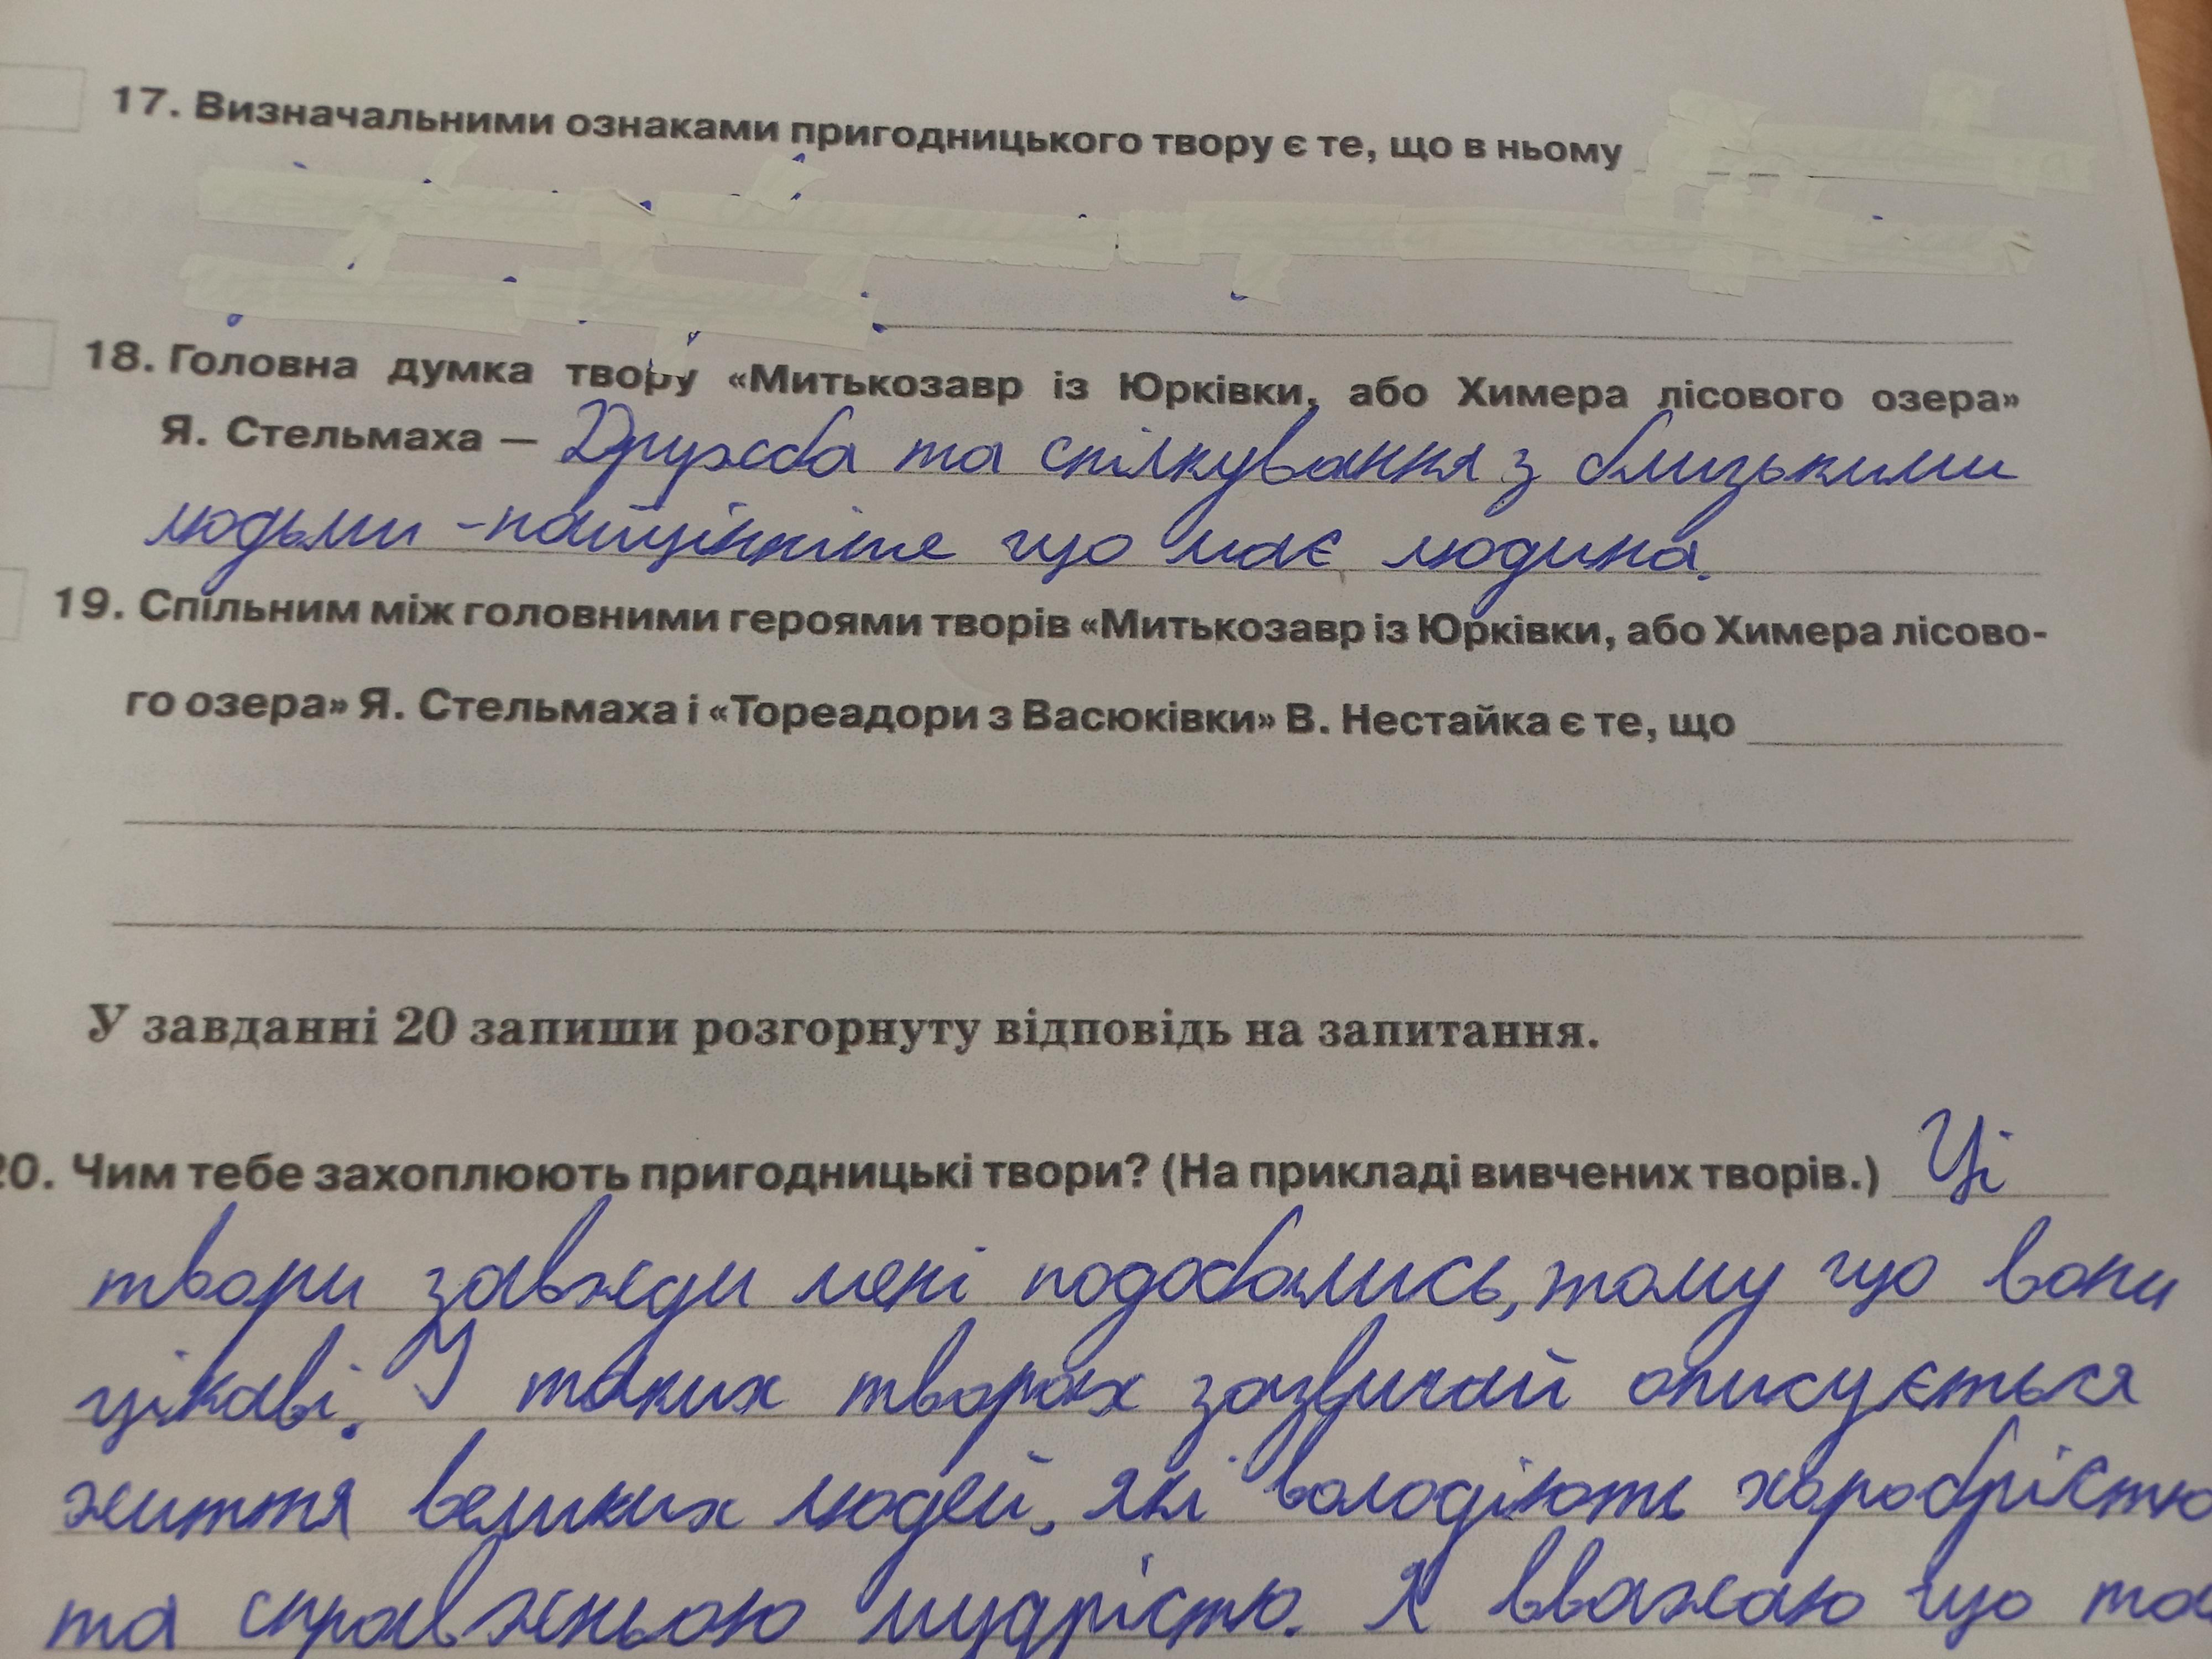 17. Визначальними ознаками пригодницького твору є те, що в ньому
18. Головна думка твору «Митькозавр із Юрківки, або Химера лісового озера»
Я. Стельмаха — Дружба та спілкування з близькими
людьми - найцінніше що має людина.
19. Спільним між головними героями творів «Митькозавр із Юрківки, або Химера лісово-
го озера» Я. Стельмаха і «Тореадори з Васюківки» В. Нестайка є те, що
У завданні 20 запиши розгорнуту відповідь на запитання.
20. Чим тебе захоплюють пригодницькі твори? (На прикладі вивчених творів.) Ці
твори завжди мені подобались, тому що вони
цікаві. У таких творах зазвичай описується
життя великих людей, які володіють хоробрістю
та справжньою мудрістю. Я вважаю що